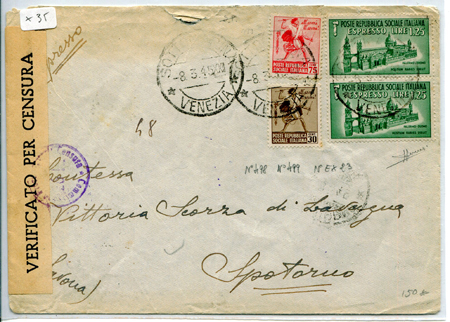 x 35
VERIFICATO PER CENSURA
Espresso
8.3.45
VENEZIA
POSTE REPUBBLICA SOCIALE ITALIANA
75
POSTE REPUBBLICA SOCIALE ITALIANA
30
POSTE REPUBBLICA SOCIALE ITALIANA
ESPRESSO LIRE 1,25
POSTE REPUBBLICA SOCIALE ITALIANA
ESPRESSO LIRE 1,25
48
N° 498 N° 499 N° EX 23
Contessa
Vittoria Scorza di
Spotorno
(Savona)
150